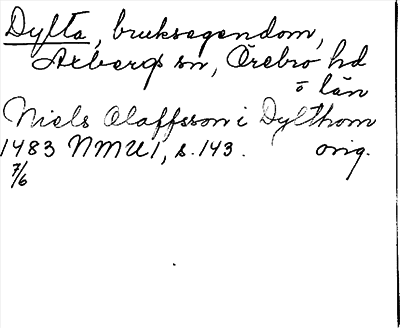 Dylta, bruksegendom,
Axbergs sn, Örebro hd
o län
Niels Olaffsson i Dylthom
1483 NMU1, s. 143. orig.
7/6